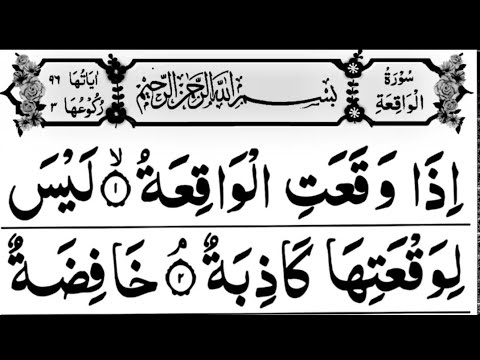 سُوْرَةُ الْوَاقِعَةِ
بِسْمِ اللّٰهِ الرَّحْمٰنِ الرَّحِيْمِ
اٰيَاتُهَا ٩٦
رُكُوْعُهَا ٣
اِذَا وَقَعَتِ الْوَاقِعَةُ ۙ‏﴿۱﴾ لَيْسَ
لِوَقْعَتِهَا كَاذِبَةٌ ۘ‏﴿۲﴾ خَافِضَةٌ